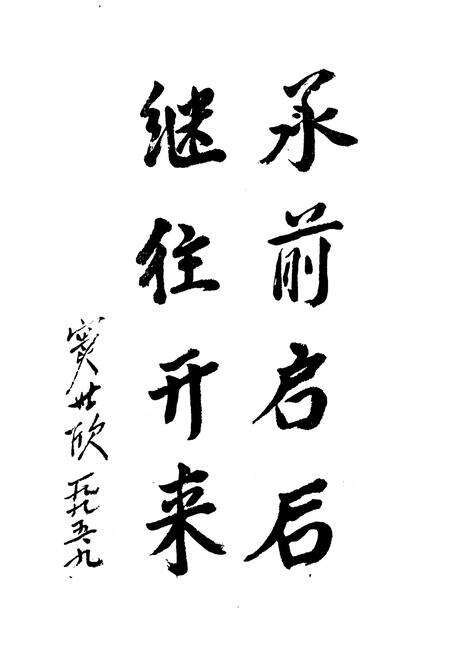 承前启后
继往开来
窦世欣 一九九五·九